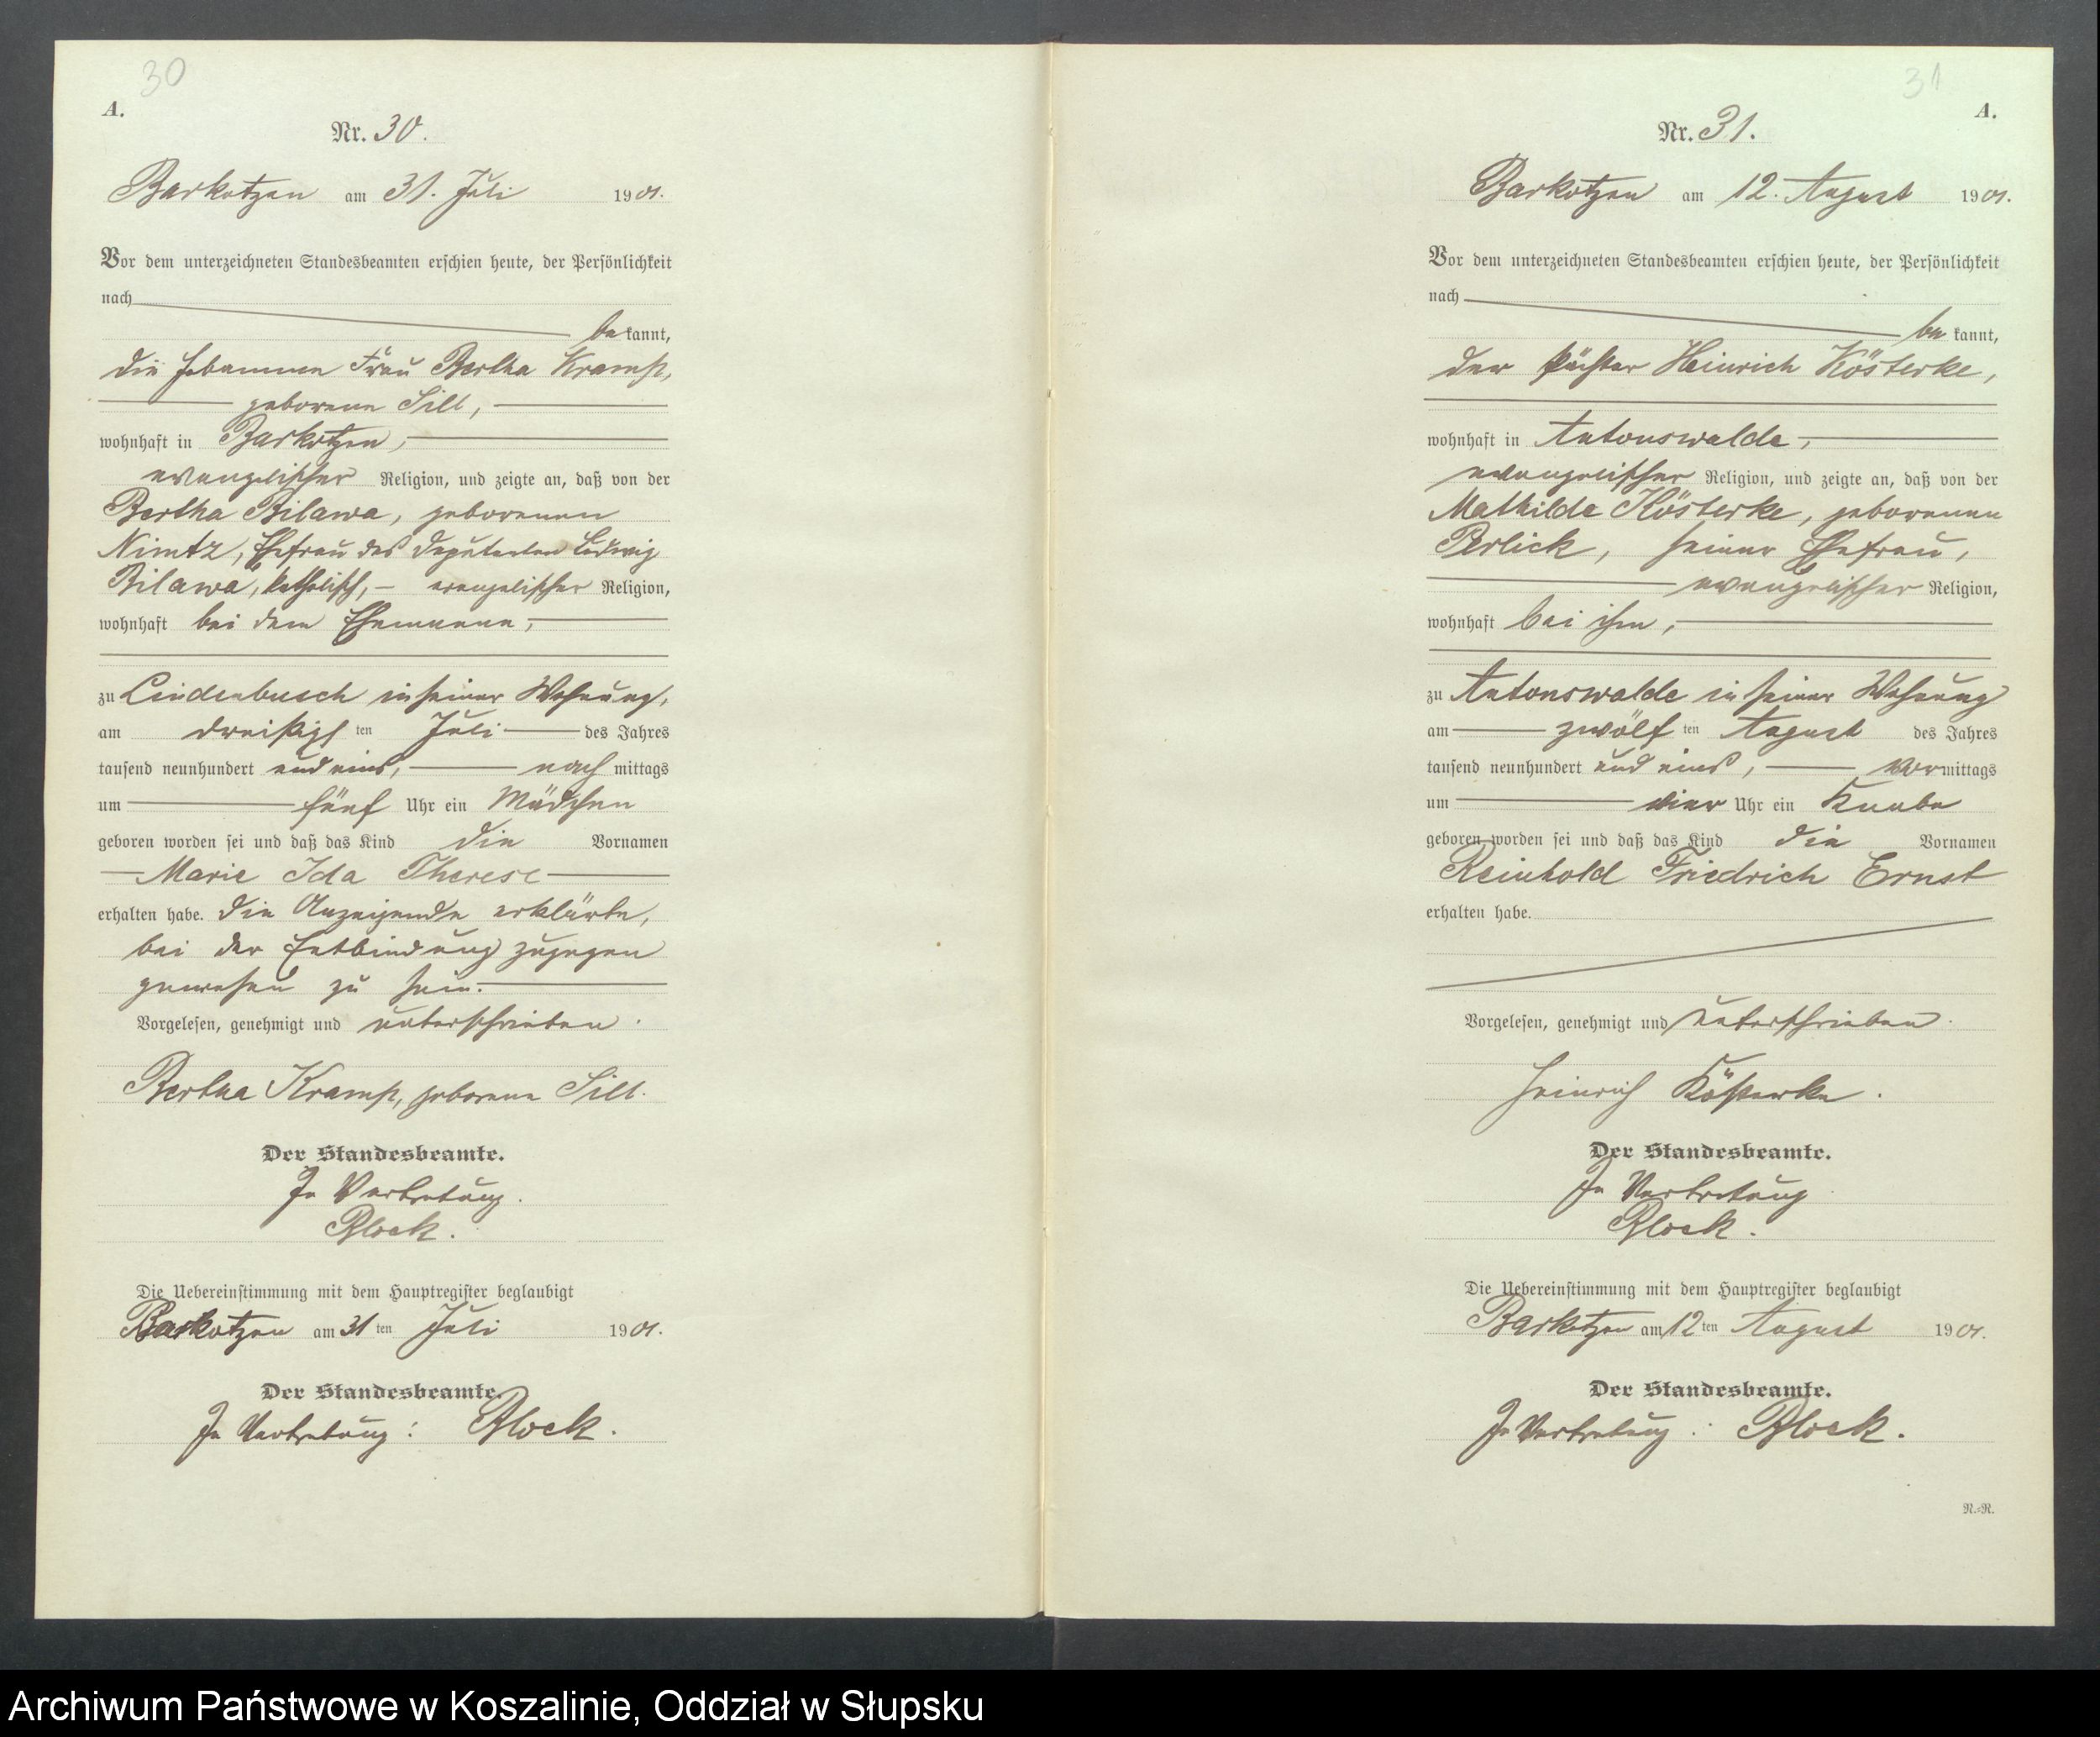 30
A.
Nr. 30.
Barkotzen am 31. Juli 1901.
Vor dem unterzeichneten Standesbeamten erschien heute, der Persönlichkeit
nach
be kannt,
die Hebamme Frau Bertha Kramp,
geborene Sill,
wohnhaft in Barkotzen,
evangelischer Religion, und zeigte an, daß von der
Bertha Bilawa, geborenen
Nimtz, Ehefrau des Deputanten Ludwig
Bilawa, katholisch, – evangelischer Religion,
wohnhaft bei dem Ehemanne,
zu Lindenbusch in seiner Wohnung,
am dreißigs ten Juli des Jahres
tausend neunhundert und eins, nach mittags
um fünf Uhr ein Mädchen
geboren worden sei und daß das Kind die Vornamen
Marie Ida Therese
erhalten habe. Die Anzeigende erklärte,
bei der Entbindung zugegen
gewesen zu sein.
Vorgelesen, genehmigt und unterschrieben.
Bertha Kramp, geborene Sill.
Der Standesbeamte.
In Vertretung.
Block.
Die Uebereinstimmung mit dem Hauptregister beglaubigt
Barkotzen am 31 ten Juli 1901.
Der Standesbeamte.
In Vertretung: Block.
31
A.
Nr. 31.
Barkotzen am 12. August 1901.
Vor dem unterzeichneten Standesbeamten erschien heute, der Persönlichkeit
nach
be kannt,
der Pächter Heinrich Kösterke,
wohnhaft in Antonswalde,
evangelischer Religion, und zeigte an, daß von der
Mathilde Kösterke, geborenen
Perlick, seiner Ehefrau,
evangelischer Religion,
wohnhaft bei ihm,
zu Antonswalde in seiner Wohnung
am zwölf ten August des Jahres
tausend neunhundert und eins, vor mittags
um vier Uhr ein Knabe
geboren worden sei und daß das Kind die Vornamen
Reinhold Friedrich Ernst
erhalten habe.
Vorgelesen, genehmigt und unterschrieben.
Heinrich Kösterke.
Der Standesbeamte.
In Vertretung
Block.
Die Uebereinstimmung mit dem Hauptregister beglaubigt
Barkotzen am 12 ten August 1901.
Der Standesbeamte.
In Vertretung: Block.
N.=N.
Archiwum Państwowe w Koszalinie, Oddział w Słupsku